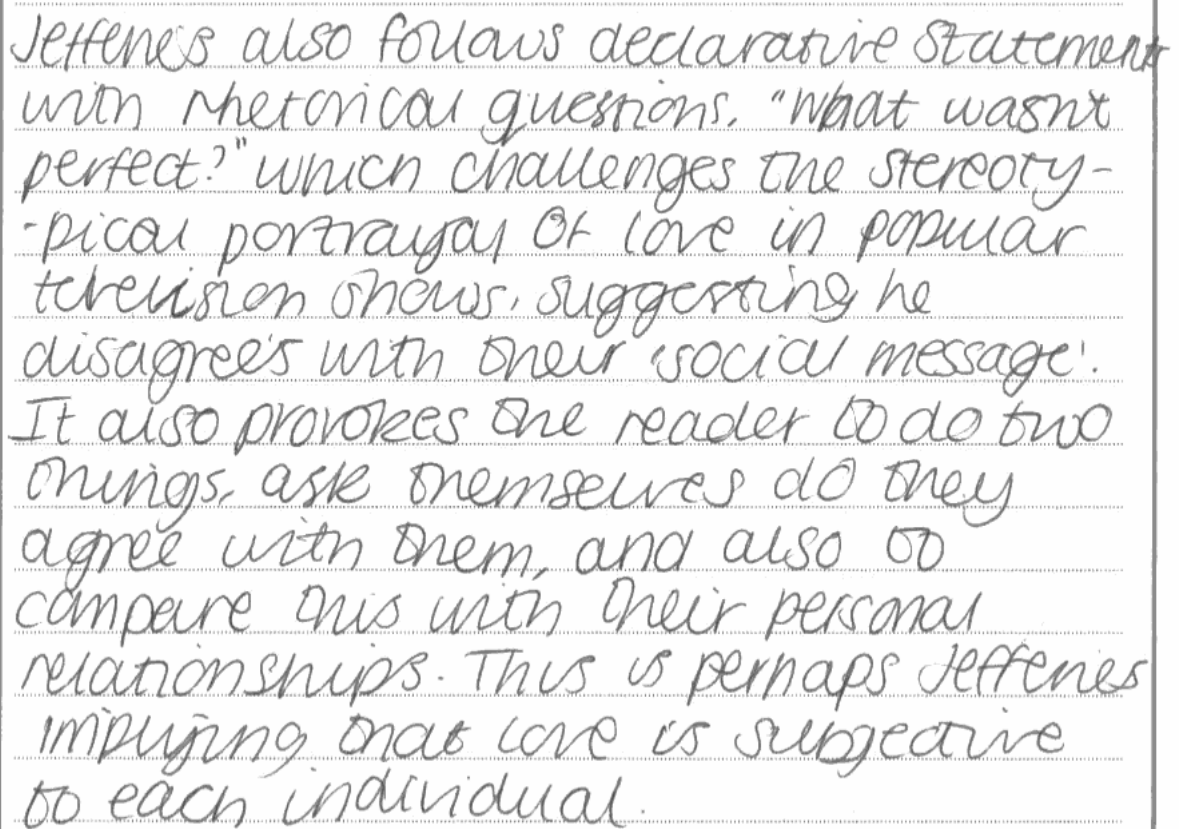 Jefferies also follows declarative statement
with rhetorical questions. "What wasn't
perfect?" which challenges the stereoty-
-pical portrayal of love in popular
television shows, suggesting he
disagrees with their 'social message'.
It also provokes the reader to do two
things, ask themselves do they
agree with them, and also to
compare this with their personal
relationships. This is perhaps Jefferies
implying that love is subjective
to each individual.